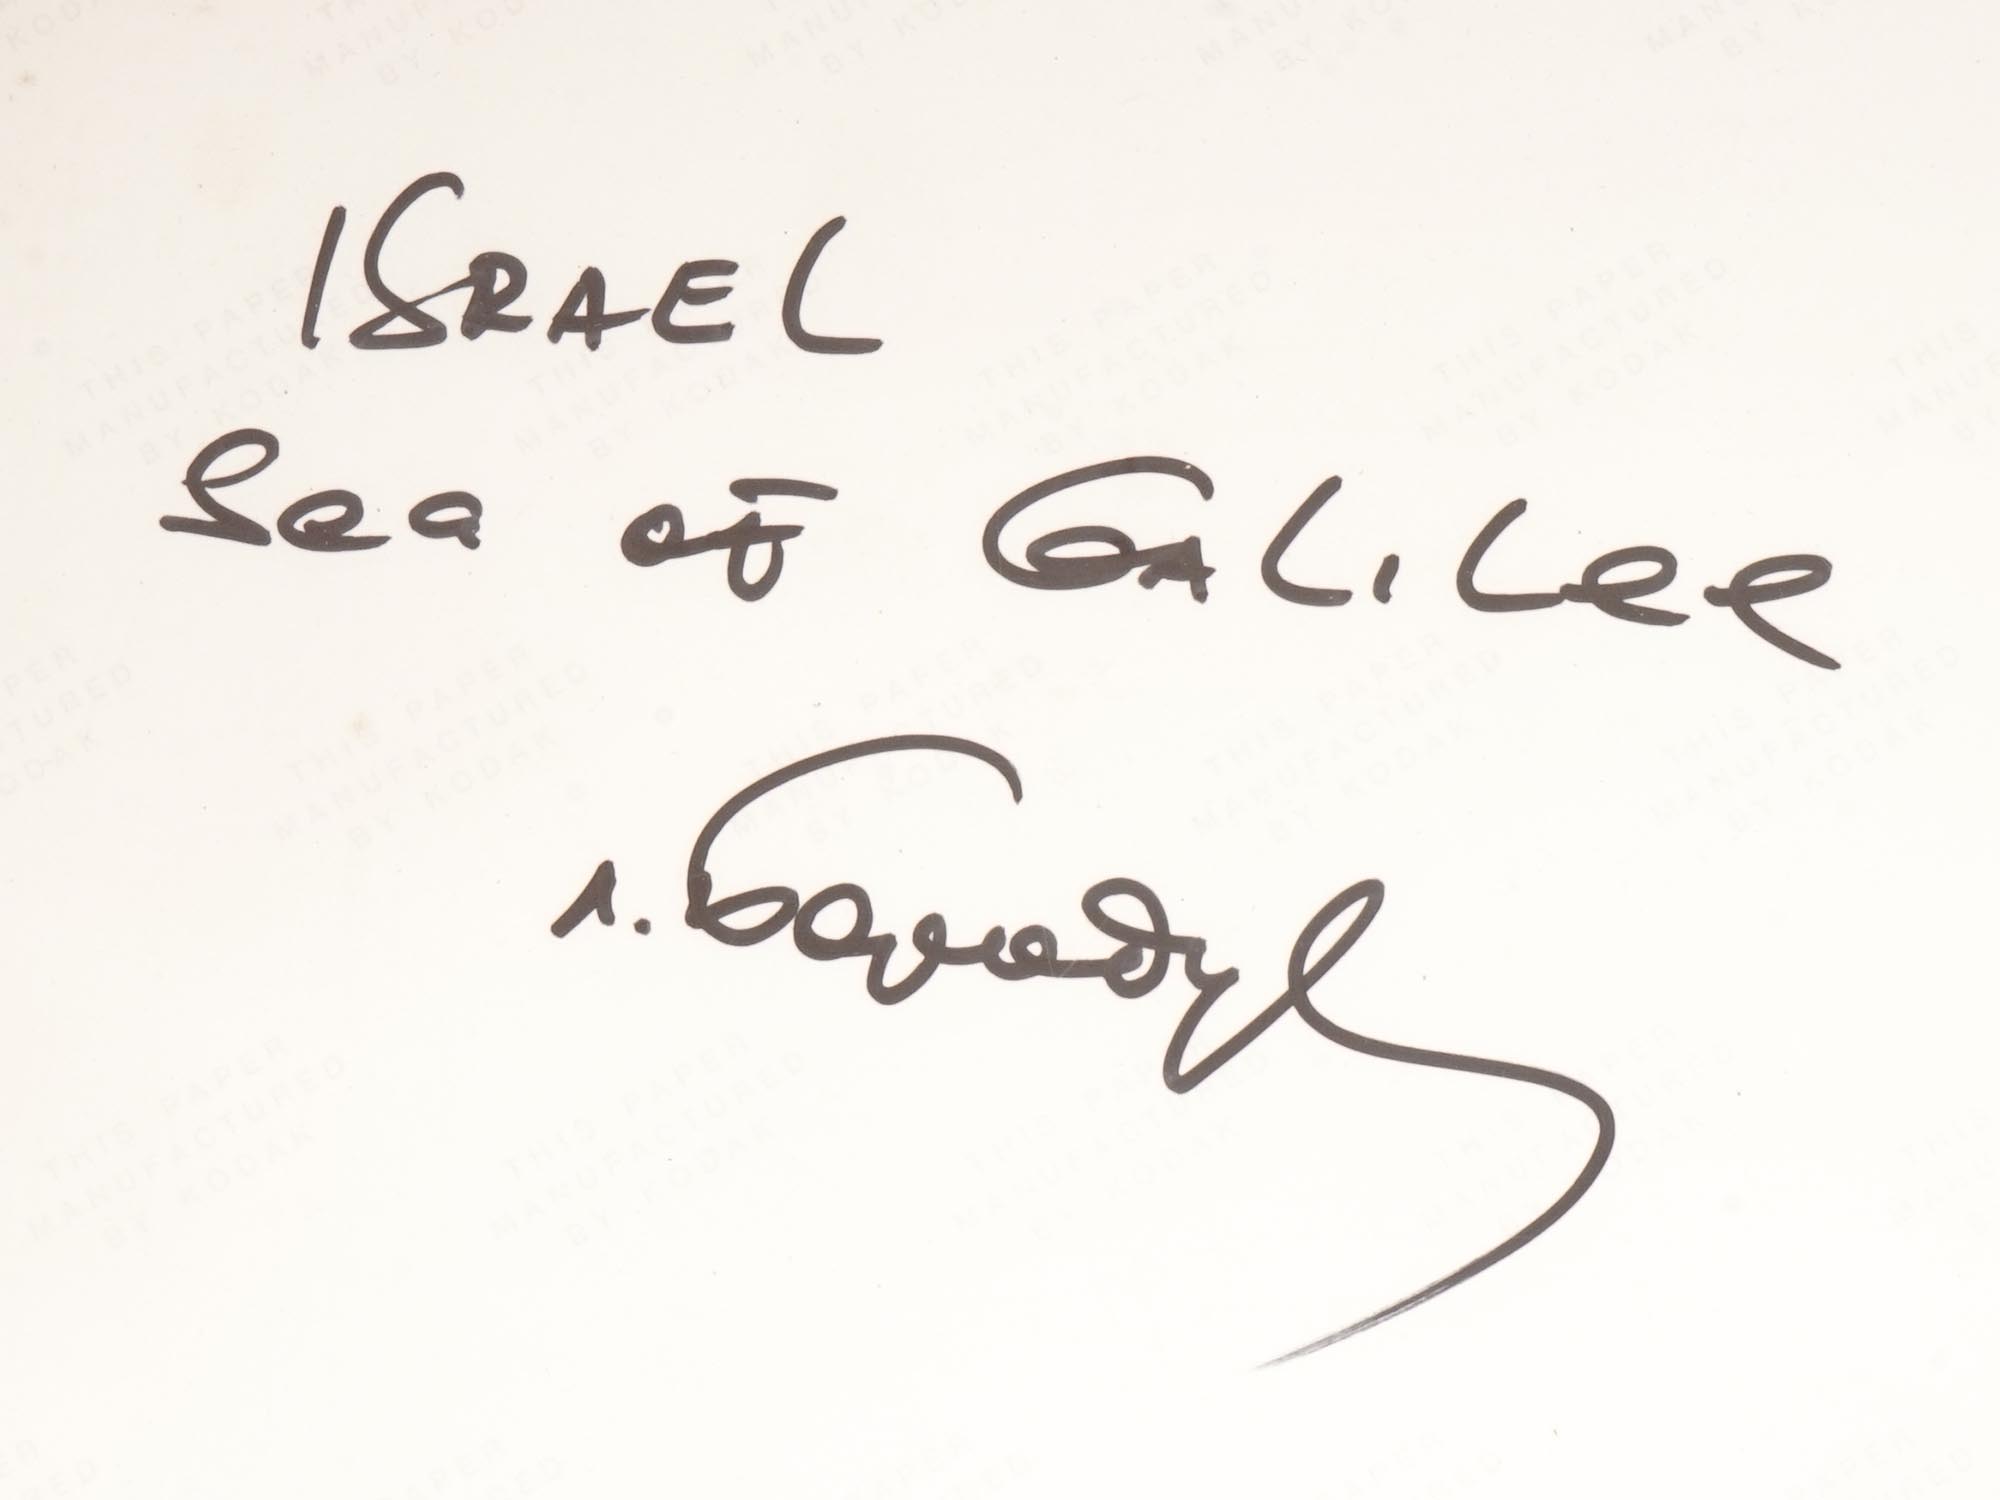 ISRAEL
Sea of GALILee
THIS PAPER
MANUFACTURED
BY KODAK